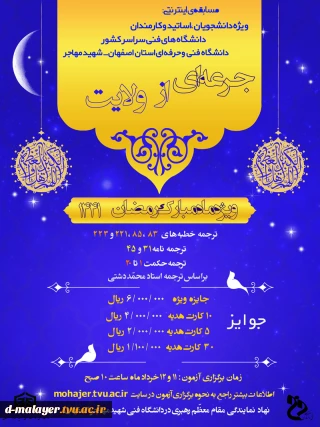 مسابقه‌ی اینترنتی
ویژه دانشجویان، اساتید و کارمندان
دانشگاه های فنی سراسر کشور
دانشگاه فنی و حرفه‌ای استان اصفهان_شهید مهاجر
جرعه‌ای از ولایت
ویژه ماه مبارک رمضان ۱۴۴۱
ترجمه خطبه‌های ۸۳، ۸۵، ۲۲۱ و ۲۲۳
ترجمه نامه ۳۱ و ۴۵
ترجمه حکمت ۱ تا ۲۰
بر اساس ترجمه استاد محمد دشتی
جوایز
جایزه ویژه ۶/۰۰۰/۰۰۰ ریال
۱۰ کارت هدیه ۴/۰۰۰/۰۰۰ ریال
۵ کارت هدیه ۲/۰۰۰/۰۰۰ ریال
۳۰ کارت هدیه ۱/۱۰۰/۰۰۰ ریال
زمان برگزاری آزمون: ۱۱ و ۱۲ خرداد ماه ساعت ۱۰ صبح
اطلاعات بیشتر راجع به نحوه برگزاری آزمون در سایت mohajer.tvu.ac.ir
نهاد نمایندگی مقام معظم رهبری در دانشگاه فنی شهید
d-malayer.tvu.ac.ir